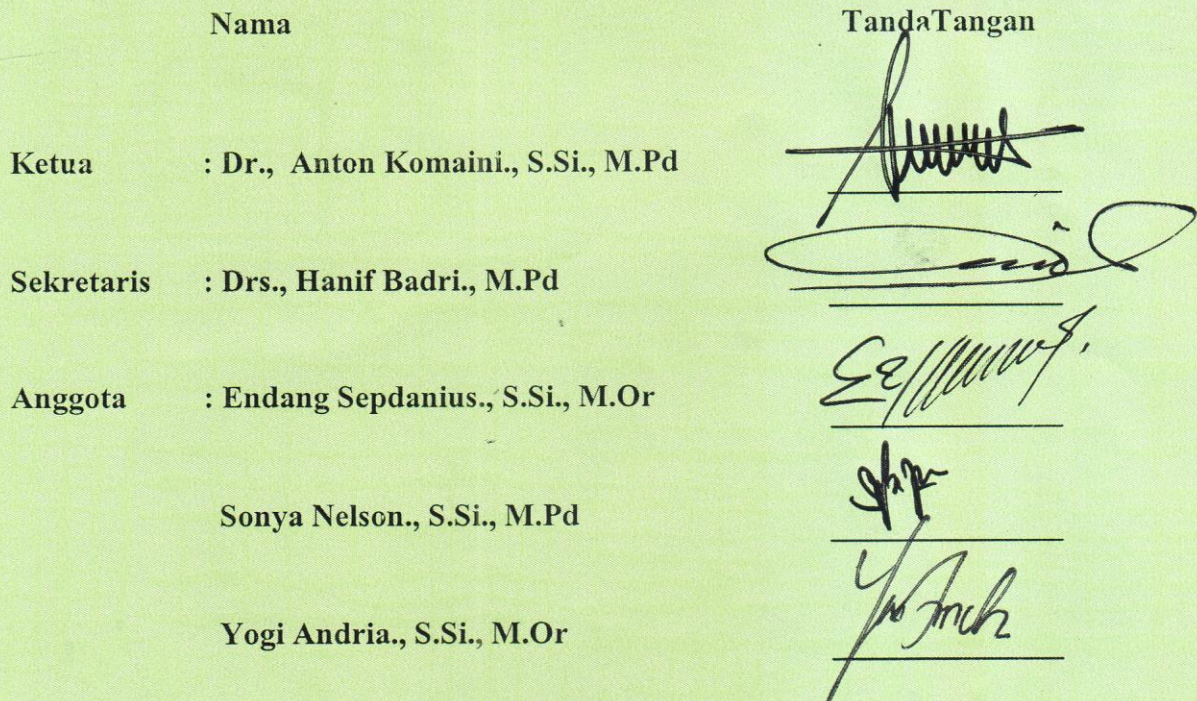 Nama TandaTangan
Ketua : Dr., Anton Komaini., S.Si., M.Pd
Sekretaris : Drs., Hanif Badri., M.Pd
Anggota : Endang Sepdanius., S.Si., M.Or
Sonya Nelson., S.Si., M.Pd
Yogi Andria., S.Si., M.Or